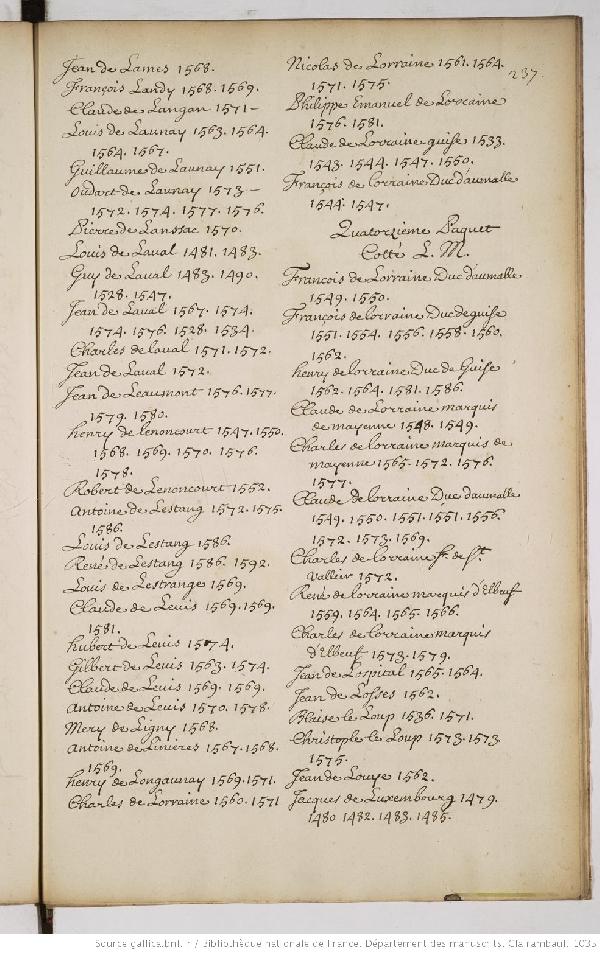 Jean de Lames 1568.
François Landy 1568. 1569.
Claude de Langan 1571 -
Louis de Launay 1563. 1564.
1564. 1567.
Guillaume de Launay 1551.
Oudart de Launay 1573 -
1572. 1574. 1577. 1576.
Pierre de Lanssac 1570.
Louis de Laual 1481. 1483.
Guy de Laual 1483. 1490.
1528. 1547.
Jean de Laual 1567. 1574.
1574. 1576. 1528. 1534.
Charles de laual 1571. 1572.
Jean de Laual 1572.
Jean de Leaumont 1576. 1577.
1579. 1580.
henry de lenoncourt 1547. 1550.
1568. 1569. 1570. 1576.
1578.
Robert de Lenoncourt 1552.
Antoine de Lestang 1572. 1575.
1586.
Louis de Lestang 1586.
René de Lestang 1586. 1592.
Louis de Lestrange 1569.
Claude de Leuis 1569. 1569.
1581.
hubert de Leuis 1574.
Gilbert de Leuis 1563. 1574.
Claude de Leuis 1569. 1569.
Antoine de Leuis 1570. 1578.
Mery de Ligny 1568.
Antoine de Linieres 1567. 1568.
1569.
henry de Longaunay 1569. 1571.
Charles de Lorraine 1560. 1571
Nicolas de Lorraine 1561. 1564.
1571. 1575.
237.
Philippe Emanuel de Lorraine
1576. 1581.
Claude de Lorraine guise 1533.
1543. 1544. 1547. 1550.
François de lorraine Duc d'aumalle
1544. 1547.
Quatorzieme Paquet
Cotté L. M.
François de Lorraine Duc d'aumalle
1549. 1550.
François de lorraine Duc de guise
1551. 1554. 1556. 1558. 1560.
1562.
henry de lorraine Duc de Guise
1562. 1564. 1581. 1586.
Claude de Lorraine marquis
de mayenne 1548. 1549.
Charles de lorraine marquis de
mayenne 1565. 1572. 1576.
1577.
Claude de lorraine Duc d'aumalle
1549. 1550. 1551. 1551. 1556.
1572. 1573. 1569.
Charles de lorraine sr. de st.
Vallier 1572.
René de lorraine marquis d'Elbeuf
1559. 1564. 1565. 1566.
Charles de lorraine marquis
d'Elbeuf 1573. 1579.
Jean de Lospital 1565. 1564.
Jean de Losses 1562.
Blaise le Loup 1536. 1571.
Christophle le Loup 1573. 1573
1575.
Jean de Louye 1562.
Jacques de Luxembourg 1479.
1480 1482. 1483. 1485.
Source gallica.bnf.fr / Bibliothèque nationale de France. Département des manuscrits. Clairambault 1035